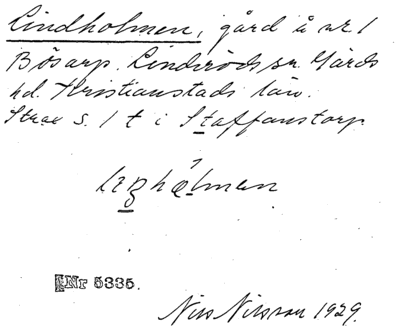 Lindholmen, gård å nr 1
Bösarp. Linderöds sn. Gärds
hd. Kristianstads län.
Strax s. 1 t i Staffanstorp
holman
Nr 5335.
Nils Nilsson 1929.